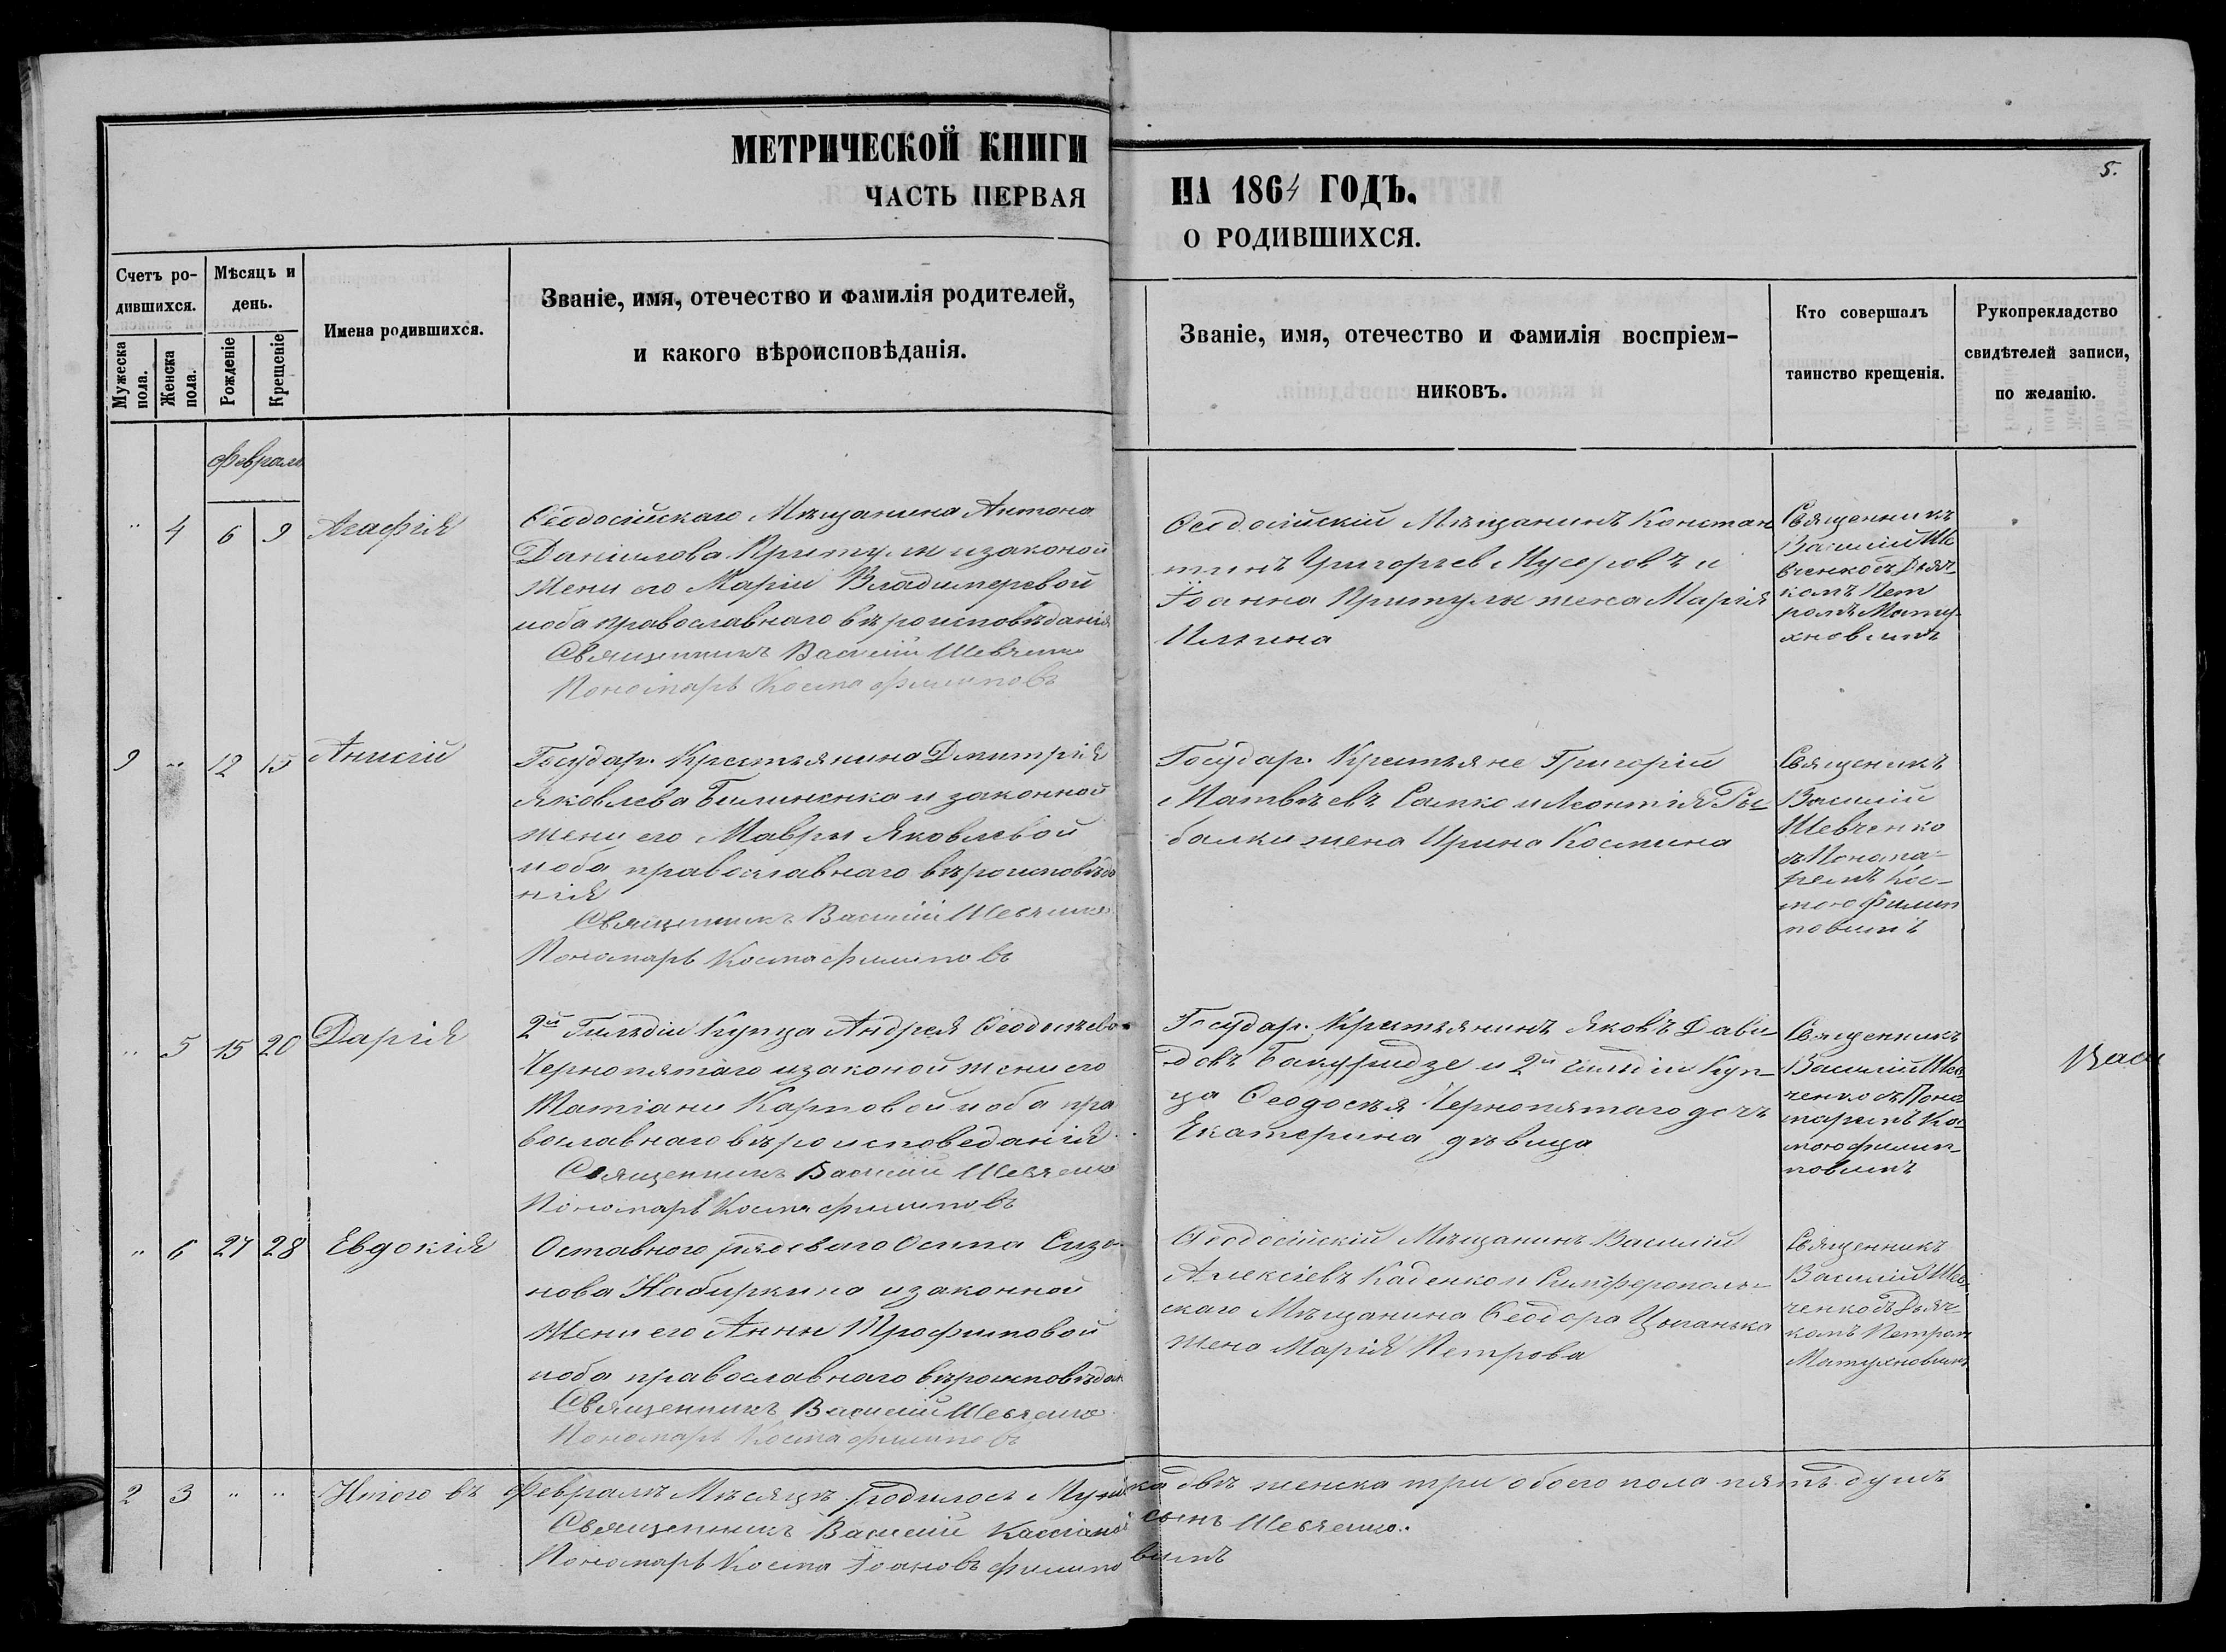 МЕТРИЧЕСКОЙ КНИГИ
ЧАСТЬ ПЕРВАЯ
НА 1864 ГОДЪ.
О РОДИВШИХСЯ.
5.
Счетъ ро-
дившихся.
Мужеска
пола.
Женска
пола.
Мѣсяцъ и
день.
Рожденіе
Крещеніе
Имена родившихся.
Званіе, имя, отечество и фамилія родителей,
и какого вѣроисповѣданія.
Званіе, имя, отечество и фамилія воспріем-
никовъ.
Кто совершалъ
таинство крещенія.
Рукоприкладство
свидѣтелей записи,
по желанію.
Февраль
" 4 6 9 Агафія
Ѳеодосійскаго Мѣщанина Антона
Даніилова Притулы и законой
Жены его Маріи Владимеревой
иоба православнаго вѣроисповѣданія
Священникъ Василій Шевченко
Пономарь Косма Филиповъ
Ѳеодосійскій Мѣщанинъ Констан
тинъ Григорьев и
Іоанна Притулы жена Марія
Ильина
Священникъ
Василій Ше
вченко съ Дьяч
комъ Пет
ромъ Мату-
хновымъ
9 " 12 15 Анисій
Государ. Крестьянина Дмитрія
Яковлева Билиненка и законной
жены его Мавры Яковлевой
иоба православнаго вѣроисповѣда
нія
Священникъ Василій Шевченко
Пономарь Косма Филиповъ
Государ. Крестьяне Григорій
Матвѣевъ Самко и Леонтія Ры-
балки жена Ирина Космина
Священикъ
Василій
Шевченко
съ Понома-
ремъ Кос-
мою Филип
повымъ
" 5 15 20 Дарія
2й Гильдіи Купца Андрея Ѳеодосѣева
Чернопятаго и законой жены его
Татіаны Карповой иоба пра
вославнаго вѣроисповеданія
Священникъ Василій Шевченко
Пономарь Косма Филиповъ
Государ. Крестьянинъ Яковъ Дави-
довъ и 2й гильдіи Куп-
ца Ѳеодосѣя Чернопятаго дочь
Екатерина дѣвица
Священникъ
Василій Шев-
ченко съ Поно
маремъ Кос
мою Филип-
повымъ
Васи
" 6 27 28 Евдокія
Оставного рядоваго Осипа Сизо-
нова Набиркина и законной
Жены его Анны Трофимовой
иоба православнаго вѣроисповѣдан
Священникъ Василій Шевченко
Пономарь Косма Филиповъ
Ѳеодосійскій Мѣщанинъ Василій
Алексіевъ Каденко и Симферополь-
скаго Мѣщанина Ѳеодора Цыганька
жена Марія Петрова
Священникъ
Василій Шев-
ченко съ Дьяч-
комъ Петром
Матухновымъ
2 3 " " Итого въ Февралѣ Мѣсяцѣ родилось Мужеска двѣ женска три обоего пола пять душъ
Священникъ Василій Кассіановъ сынъ Шевченко.
Пономарь Косма Іоановъ Филиповымъ